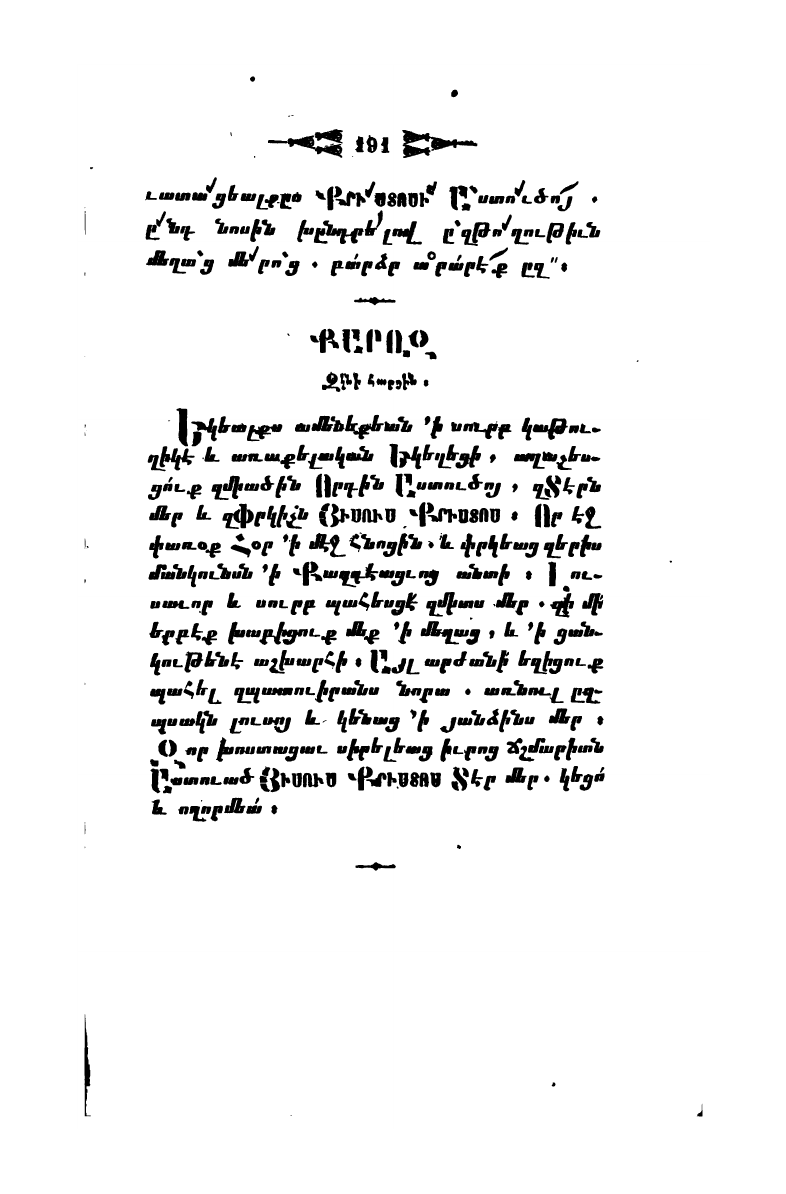 191
ւատա՛ցեալքըս ՔՐԻ՛ՍՏՈՍԻ՛ Ա՛ստո՛ւծո՛յ .
ը՛նդ նոսին խընդրե՛լով ըզթո՛ղութիւն
մեղա՛ց մե՛րո՛ց . բա՛րձր ա՛րա՛րէ՛ք ըզ"։
ՔԱՐՈԶ
Զ՟Ննի հարցին .
Եկեալքս ամենեքեան ՚ի սուրբ կաթու-
ղիկէ և առաքելական Եկեղեցի , աղաչես-
ցուք զմիածին Որդին Աստուծոյ , զՏէրն
մեր և զՓրկիչն ՅԻՍՈՒՍ ՔՐԻՍՏՈՍ ։ Որ էջ
փառօք Հօր ՚ի մէջ Հնոցին . և փրկեաց զերիս
մանկունսն ՚ի Քաղդէացւոց անտի ։ Լու-
սաւոր և սուրբ պահեսցէ զմիտս մեր . զի մի
երբէք խաբիցուք մեք ՚ի մեղաց , և ՚ի ցան-
կութենէ աշխարհի ։ Այլ արժանի եղիցուք
պահել զպատուիրանս նորա . առնուլ ըզ-
պսակն լուսոյ և կենաց ՚ի յանձինս մեր ։
Զոր խոստացաւ սիրելեաց իւրոց ճշմարիտն
Աստուած ՅԻՍՈՒՍ ՔՐԻՍՏՈՍ Տէր մեր . կեցո՛
և ողորմեա՛ ։